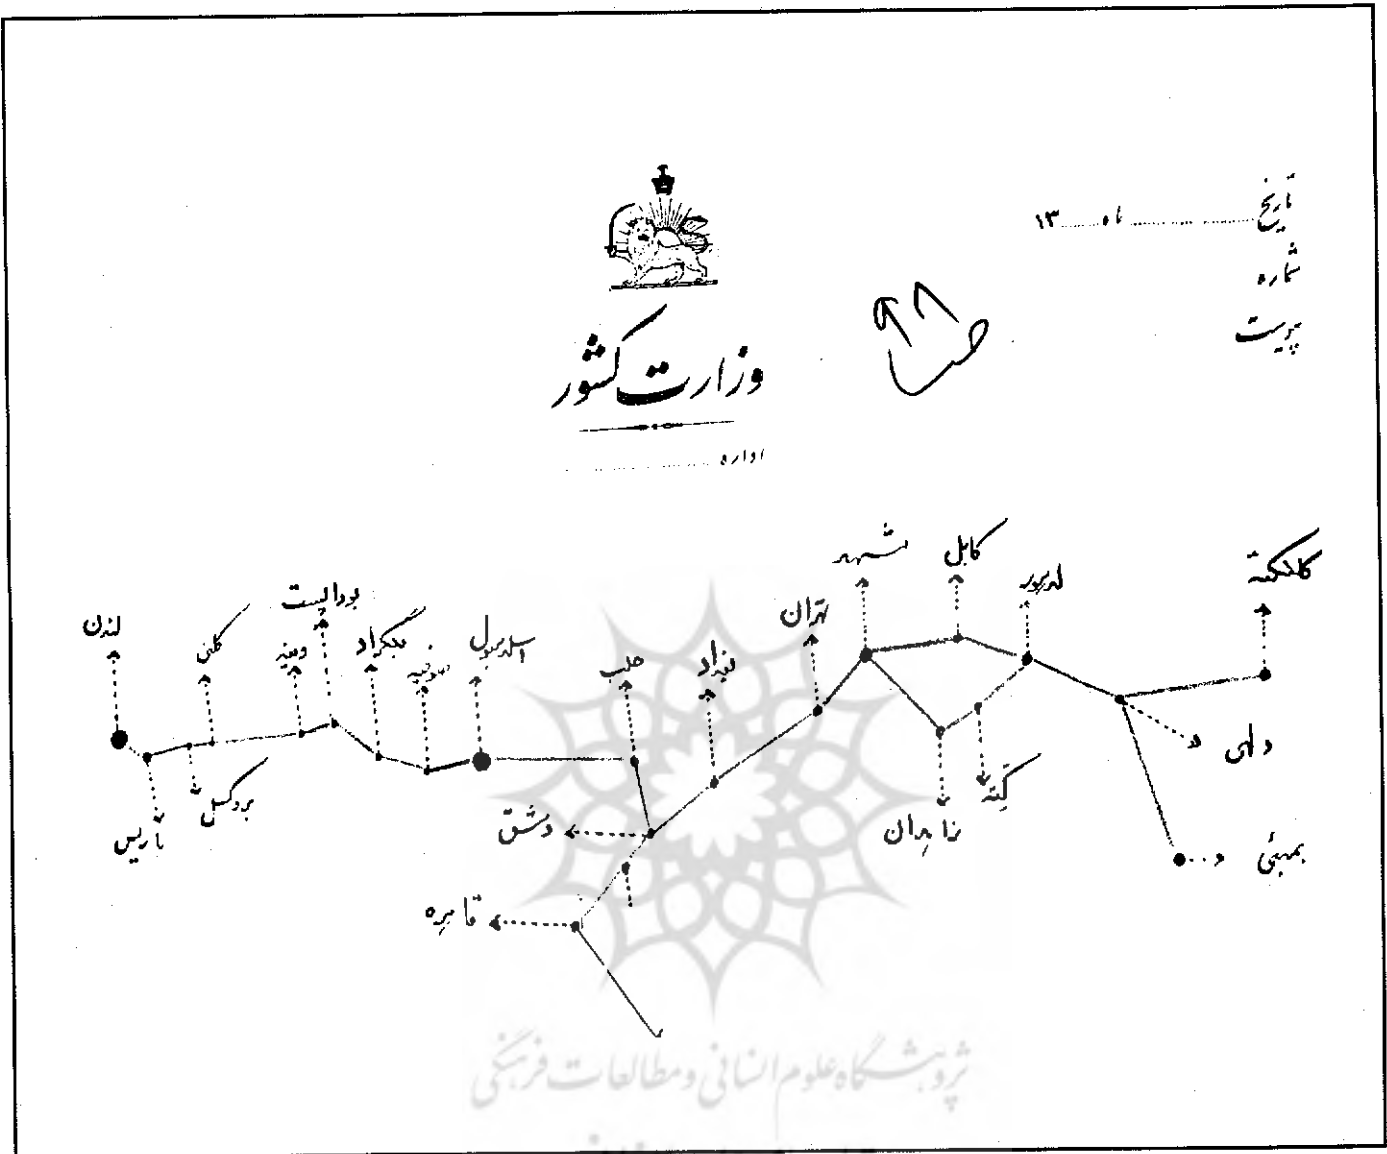 تاریخ ........ ماه ..... ۱۳
شماره
پیوست
وزارت کشور
اداره
لندن
پاریس
بروکسل
کلنی
وینه
بوداپست
بلگراد
صوفیه
اسلامبول
حلب
دمشق
قاهره
بغداد
تهران
مشهد
کابل
لاهور
زاهدان
کته
دلهی
بمبئی
کلکته
پژوهشگاه علوم انسانی و مطالعات فرهنگی